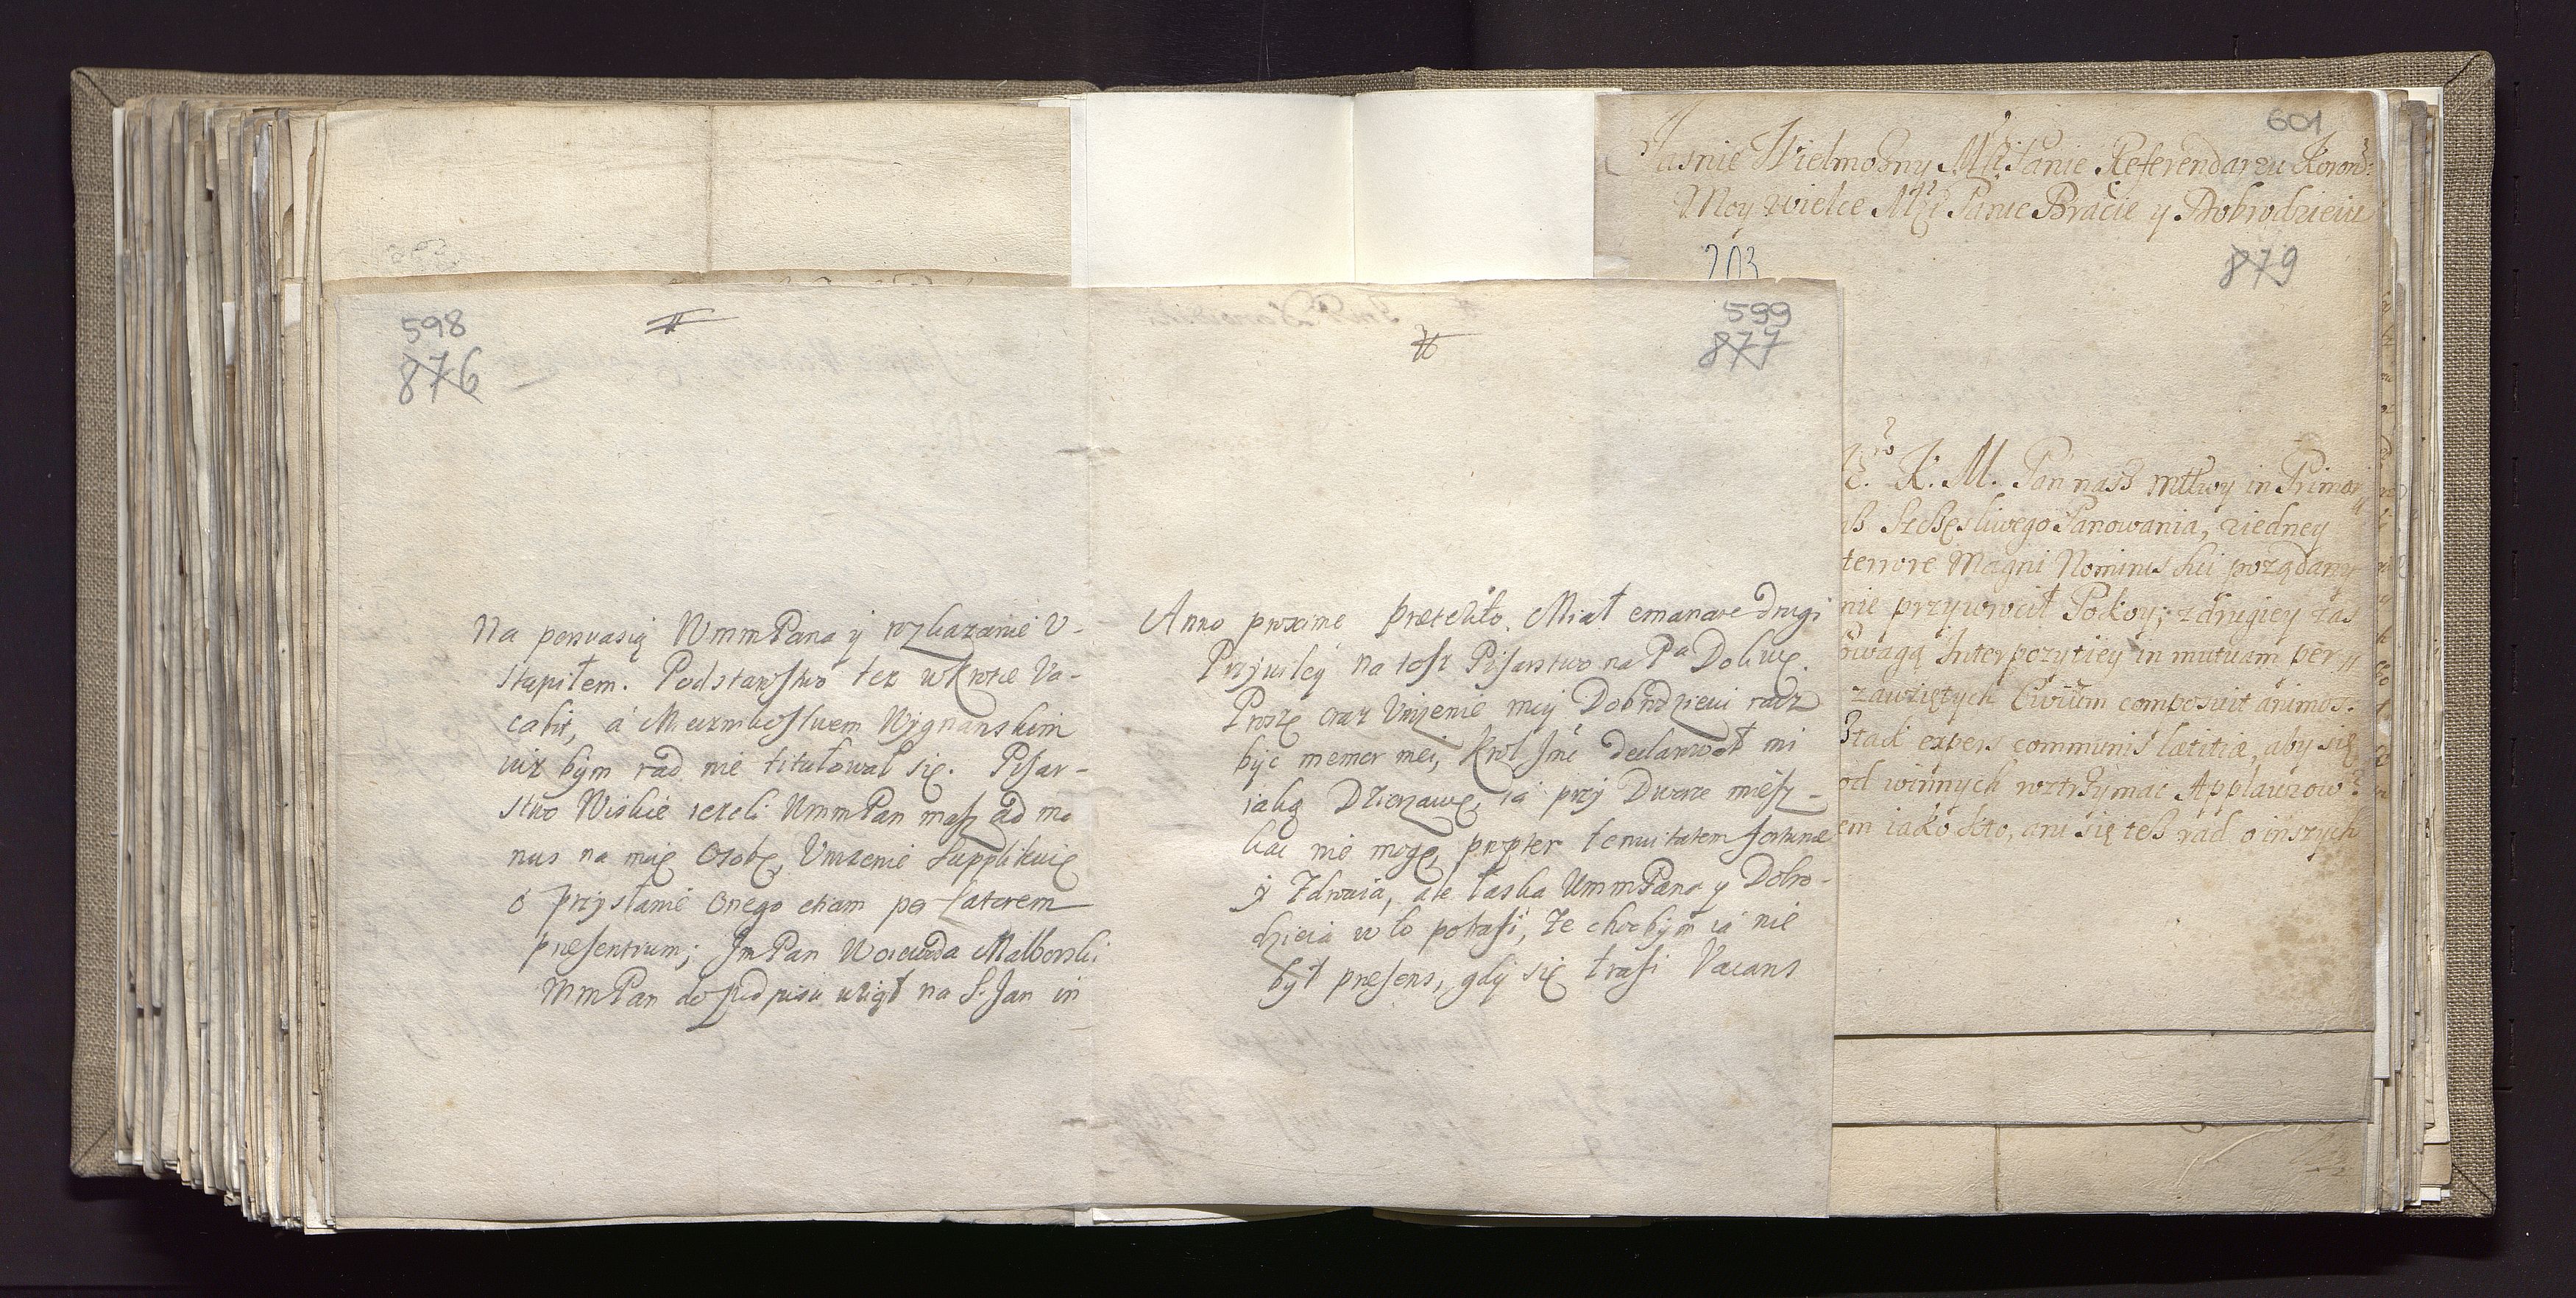 598
876
#
Na persuasią WmmPana y rozkazanie V-
stąpiłem. Podstarostwo tez wkrotce Va-
cabit, á Murzinkostwem Wignanskim
iuz bym rad nie titułował się. Pisar-
stwo Wiskie iezeli WmmPan masz ad ma
nus na moię Osobę, Unizenie Supplikuię
o przysłanie Onego etiam per latorem
præsentium; JmPan Woiewoda Malborski
WmPan do podpisu wziął na S. Jan in
599
877
#
Anno proxime præterito. Miał emanare drugi
Przywiley na tosz Pisarstwo na Pa Doliwę.
Proszę oraz Unizenie moy Dobrodzieiu racz
być memor mei, Krol Jmć declarował mi
iaką Dzierzawę, ia przy Dworze miesz-
kać nie mogę, propter tenuitatem fortunæ
y Zdrowia, ale łaska WmmPana y Dobro-
dzieia w to potrafi, ze choćbym ia nie
był præsens, gdy się trafi Vacans
601
Jasnie Wielmozny Mći Panie Referendarzu Koron:
Moy wielce Mći Panie Bracie y Dobrodzieiu
203
879
K. M. Pan nasz mtłwy in Primor
Szczęsliwego Panowania, ziedney
terrore Magni Nominis sui poządany
nie przywrocił Pokoy; zdrugiey zas
owagą Interpozytiey in mutuam per
zawziętych Civium composuit animos.
expers communis lætitiæ, aby się
od winnych wztrzymac Applauzow
em iako kto, ani się tesz rad o inszych